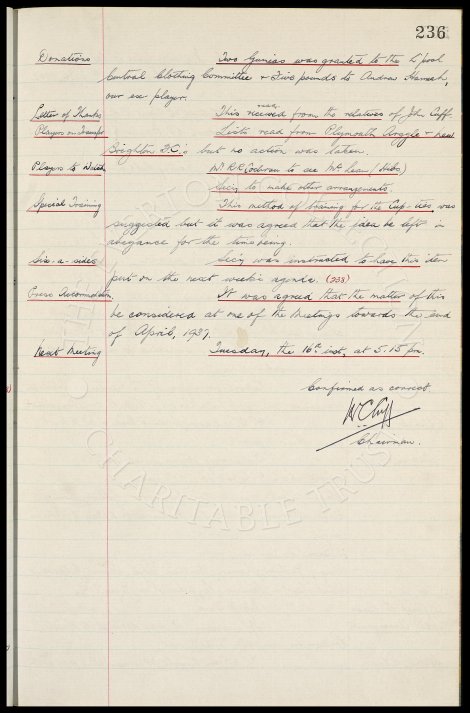 236
Donations Two Guineas was granted to the L'pool
Central Clothing Committee & Five pounds to Andrew Hannah,
our ex player.
Letter of Thanks This received from the relatives of John Cuff.
Players on Transfer Lists read from Plymouth Argyle & New
Brighton F.C.'s but no action was taken.
Players to Watch Mr R.R. Cochran to see McLean (Hibs)
Sec'y to make other arrangements.
Special Training This method of training for the Cup-ties was
suggested but it was agreed that the idea be left in
abeyance for the time being.
Six-a-sides Sec'y was instructed to have this item
put on the next week's agenda. (238)
Press Accommodation It was agreed that the matter of this
be considered at one of the Meetings towards the end
of April, 1937.
Next Meeting Tuesday, the 16th inst, at 5.15 pm.
Confirmed as correct.
W. C. Cuff
Chairman.
CHARITABLE TRUST